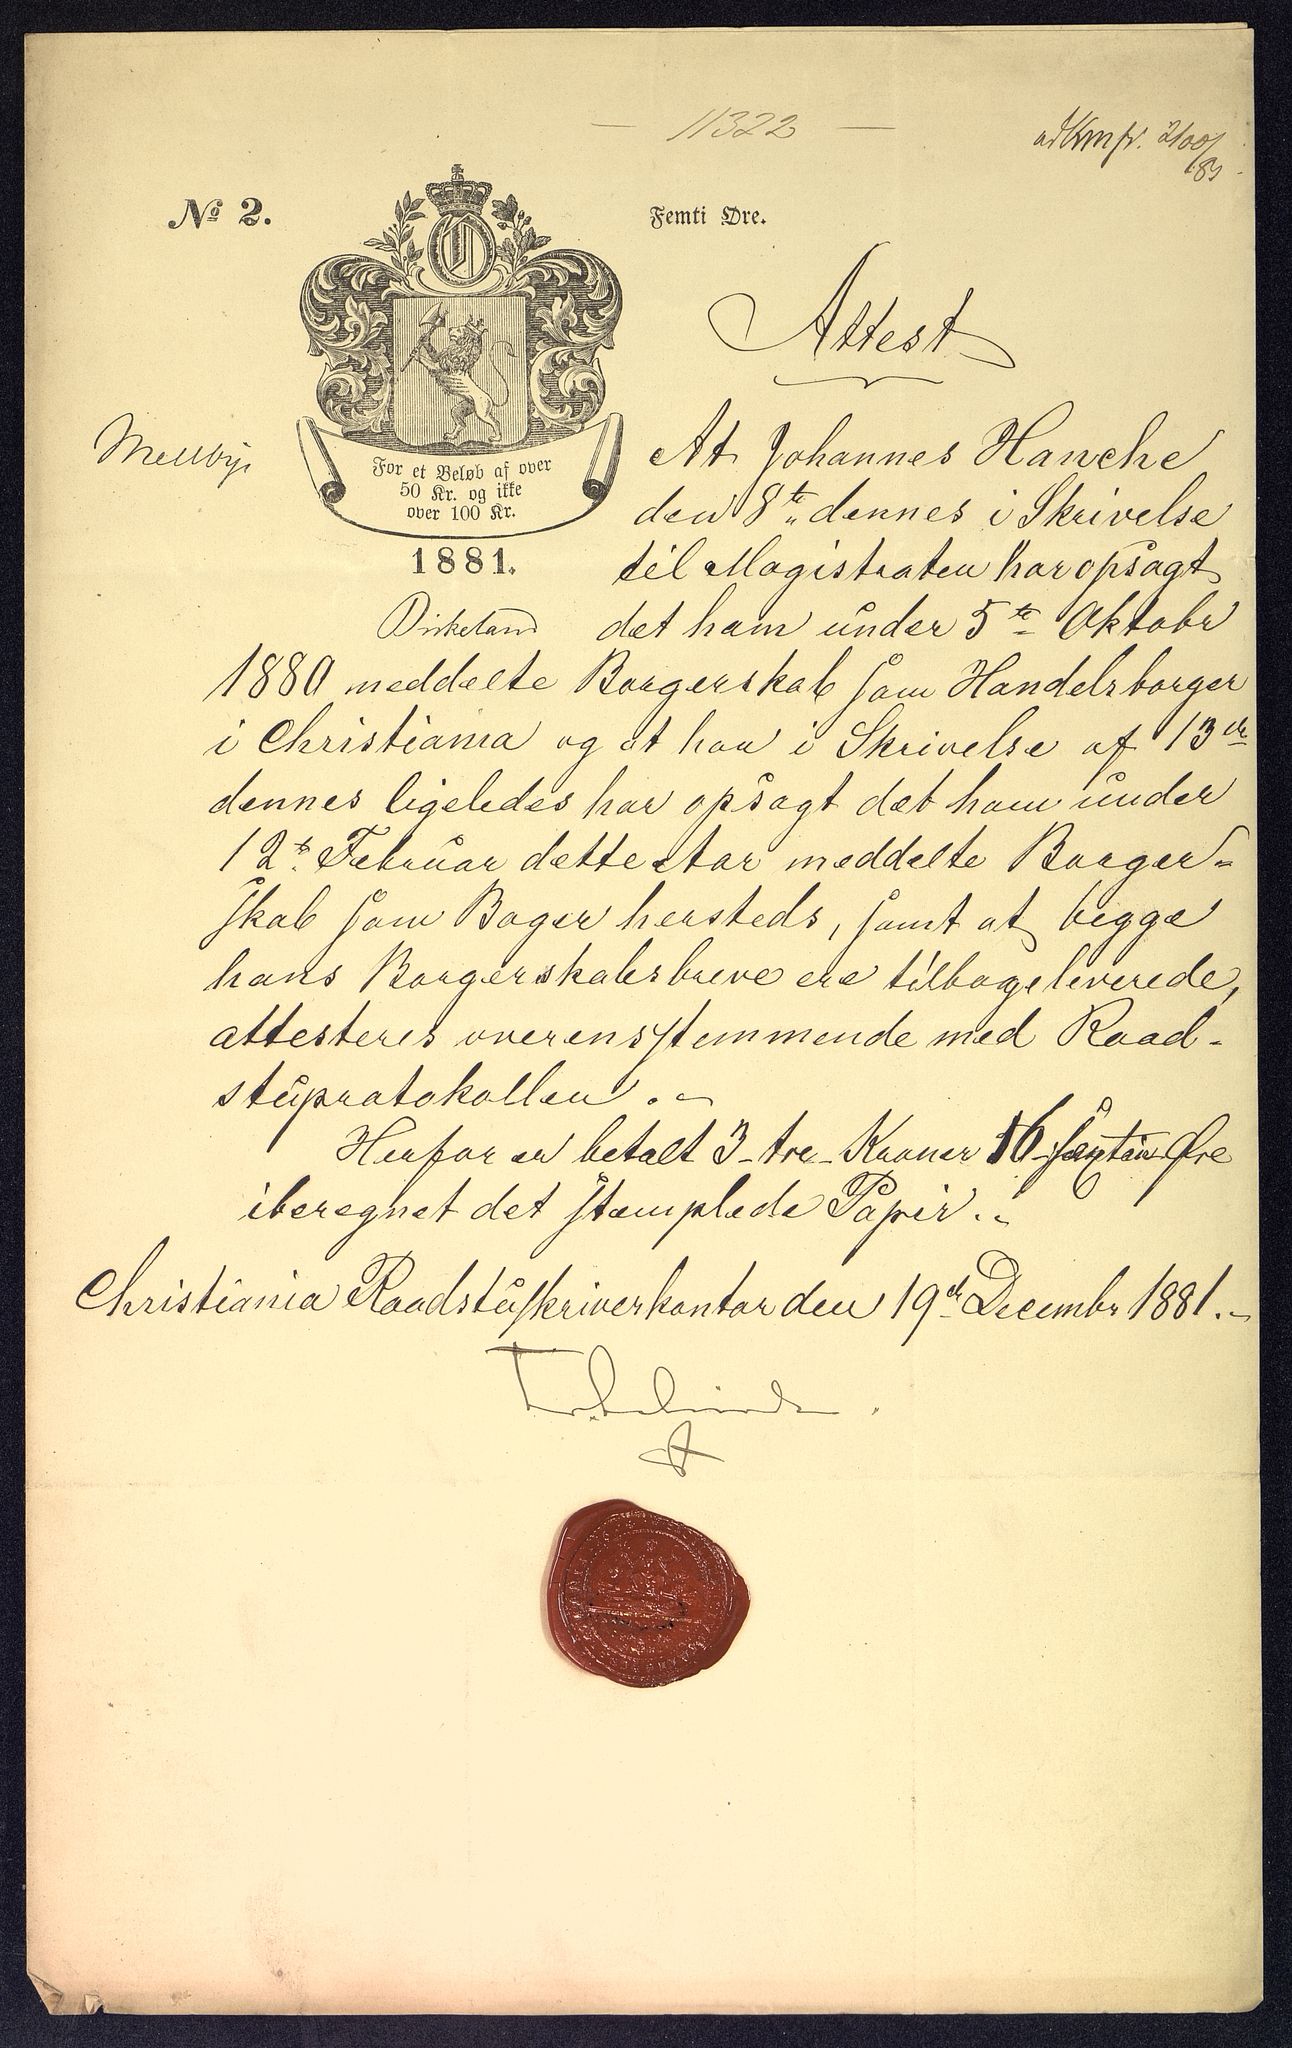 11322
No 2.
Femti Øre.
Attest
For et Beløb af over
50 Kr. og ikke
over 100 Kr.
1881.
At Johannes Hanche
den 8de dennes i Skrivelse
til Magistraten har opsagt
det ham under 5te Oktobr
1880 meddelte Borgerskab som Handelsborger
i Christiania og at han i Skrivelse af 13de
dennes ligeledes har opsagt det ham under
12te Februar dette Aar meddelte Borger-
skab som Bager hersteds, samt at begge
hans Borgerskabsbreve ere tilbageleverede,
attesteres overensstemmende med Raad-
stuprotokollen.
Herfor er betalt 3 - tre - Kroner 16 - sexten Øre
iberegnet det stemplede Papir.
Christiania Raadstuskriverkontor den 19de Decembr 1881.